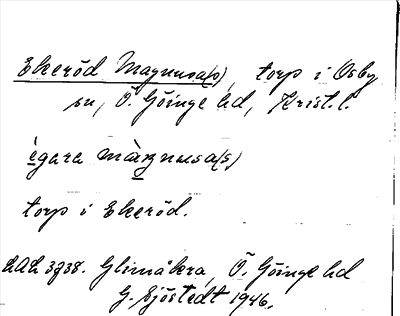 Ekeröd Magnusa(s), torp i Osby
sn, Ö. Göinge hd, Krist. l.
ègara màgnusa(s)
torp i Ekeröd.
LAL 3738. Glimåkra, Ö. Göinge hd
G. Sjöstedt 1946.